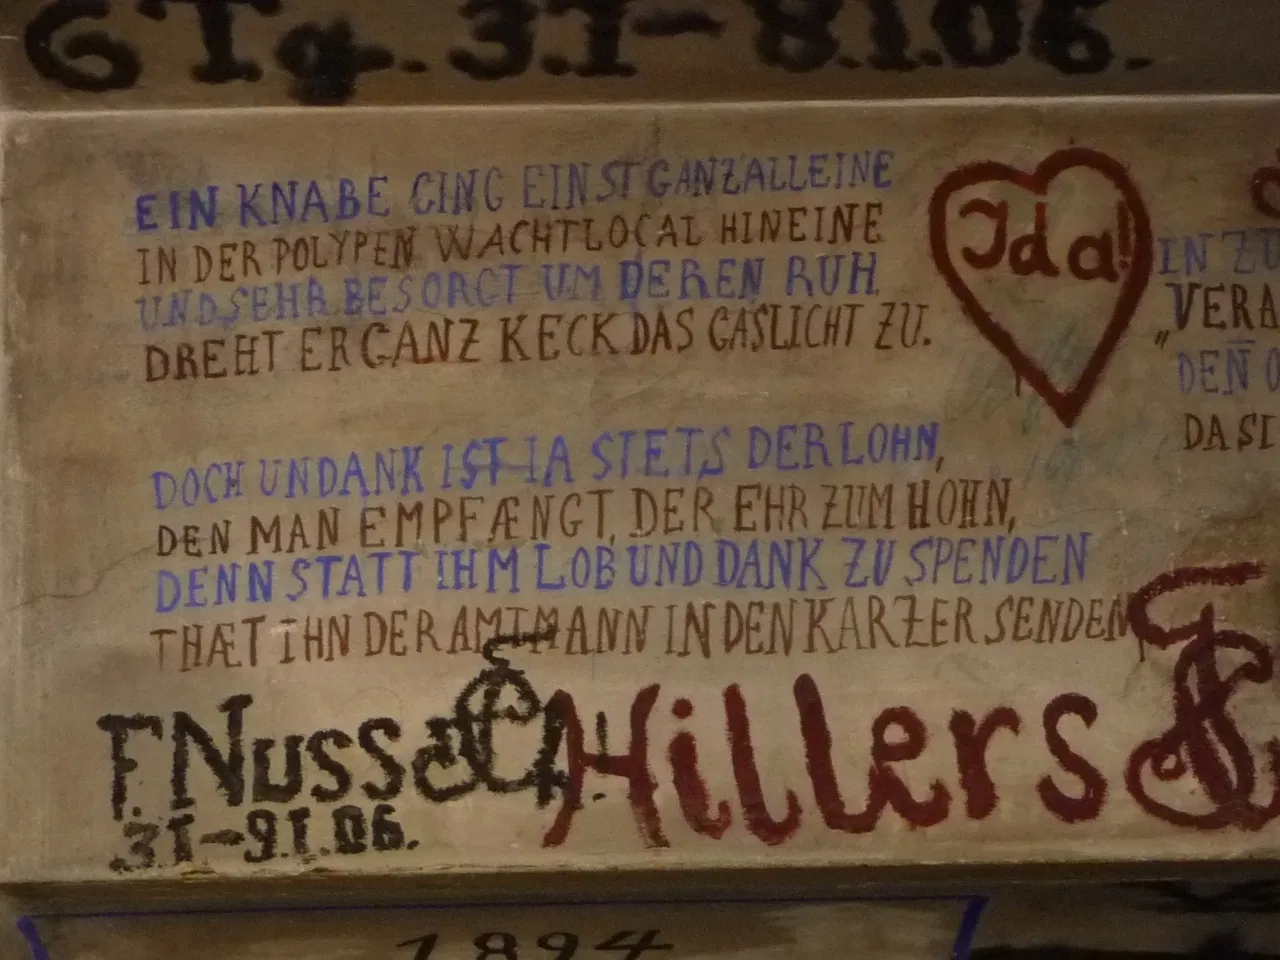 G Tg. 3.I-8.I.06.
EIN KNABE GING EINST GANZ ALLEINE
IN DER POLYPEN WACHTLOCAL HINEINE
UND SEHR BESORGT UM DEREN RUH
DREHT ER GANZ KECK DAS GASLICHT ZU.
Ida!
IN ZU
„VERA
DEN̄
DA SI
DOCH UNDANK IST IA STETS DER LOHN,
DEN MAN EMPFÆNGT, DER EHR ZUM HOHN,
DENN STATT IHM LOB UND DANK ZU SPENDEN
THÆT IHN DER AMTMANN IN DEN KARZER SENDEN
F. Nuss
Hillers
3.I-9.I.06.
1894